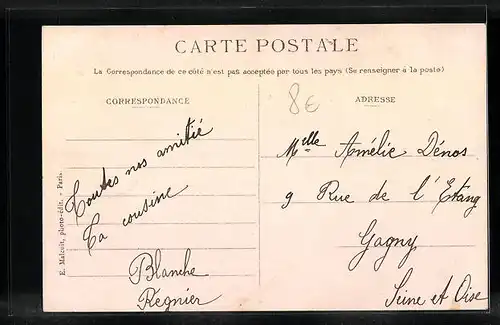 CARTE POSTALE
La Correspondance de ce côté n'est pas acceptée par tous les pays (Se renseigner à la poste)
CORRESPONDANCE
Toutes nos amitié
Ta cousine
Blanche
Regnier
E. Malcuit, photo-édit. - Paris.
8€
ADRESSE
Melle Amélie Dénos
9 Rue de l'Etang
Gagny
Seine et Oise